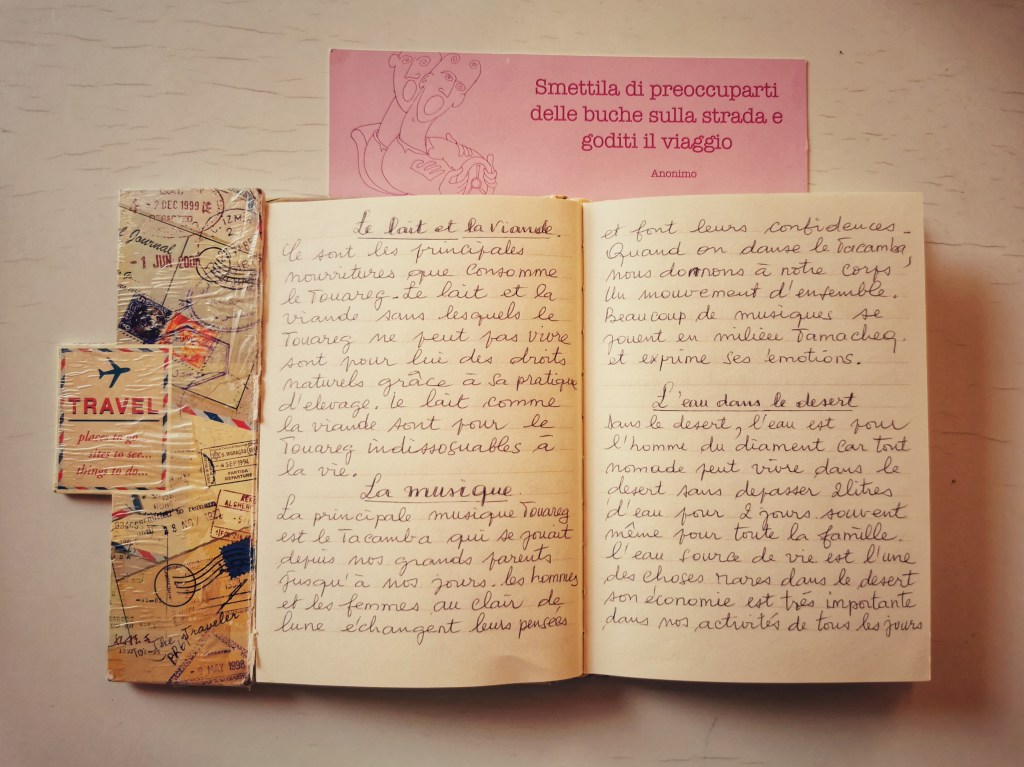 Smettila di preoccuparti
delle buche sulla strada e
goditi il viaggio
Anonimo
- 2 DEC 1999
Journal
- 1 JUN 2000
TRAVEL
places to go
sites to see...
things to do...
4 SEP 1994
PARTIDA
DEPARTURE
28 NOV
The Traveler
- 9 MAY 1998
Le lait et la viande.
Ce sont les principales
nourritures que consomme
le Touareg. Le lait et la
viande sans lesquels le
Touareg ne peut pas vivre
sont pour lui des droits
naturels grâce à sa pratique
d'elevage. le lait comme
la viande sont pour le
Touareg indissosuables à
la vie.
La musique.
La principale musique Touareg
est le Tacamba qui se jouait
depuis nos grands parents
jusqu'à nos jours. les hommes
et les femmes au clair de
lune échangent leurs pensées
et font leurs confidences.
Quand on danse le Tacamba,
nous donnons à notre corps
Un mouvement d'ensemble.
Beaucoup de musiques se
jouent en milieu Tamacheq
et exprime ses emotions.
L'eau dans le desert
Dans le desert, l'eau est pour
l'homme du diament car tout
nomade peut vivre dans le
desert sans depasser 2litres
d'eau pour 2 jours souvent
même pour toute la famille.
l'eau source de vie est l'une
des choses rares dans le desert
son économie est très importante
dans nos activités de tous les jours